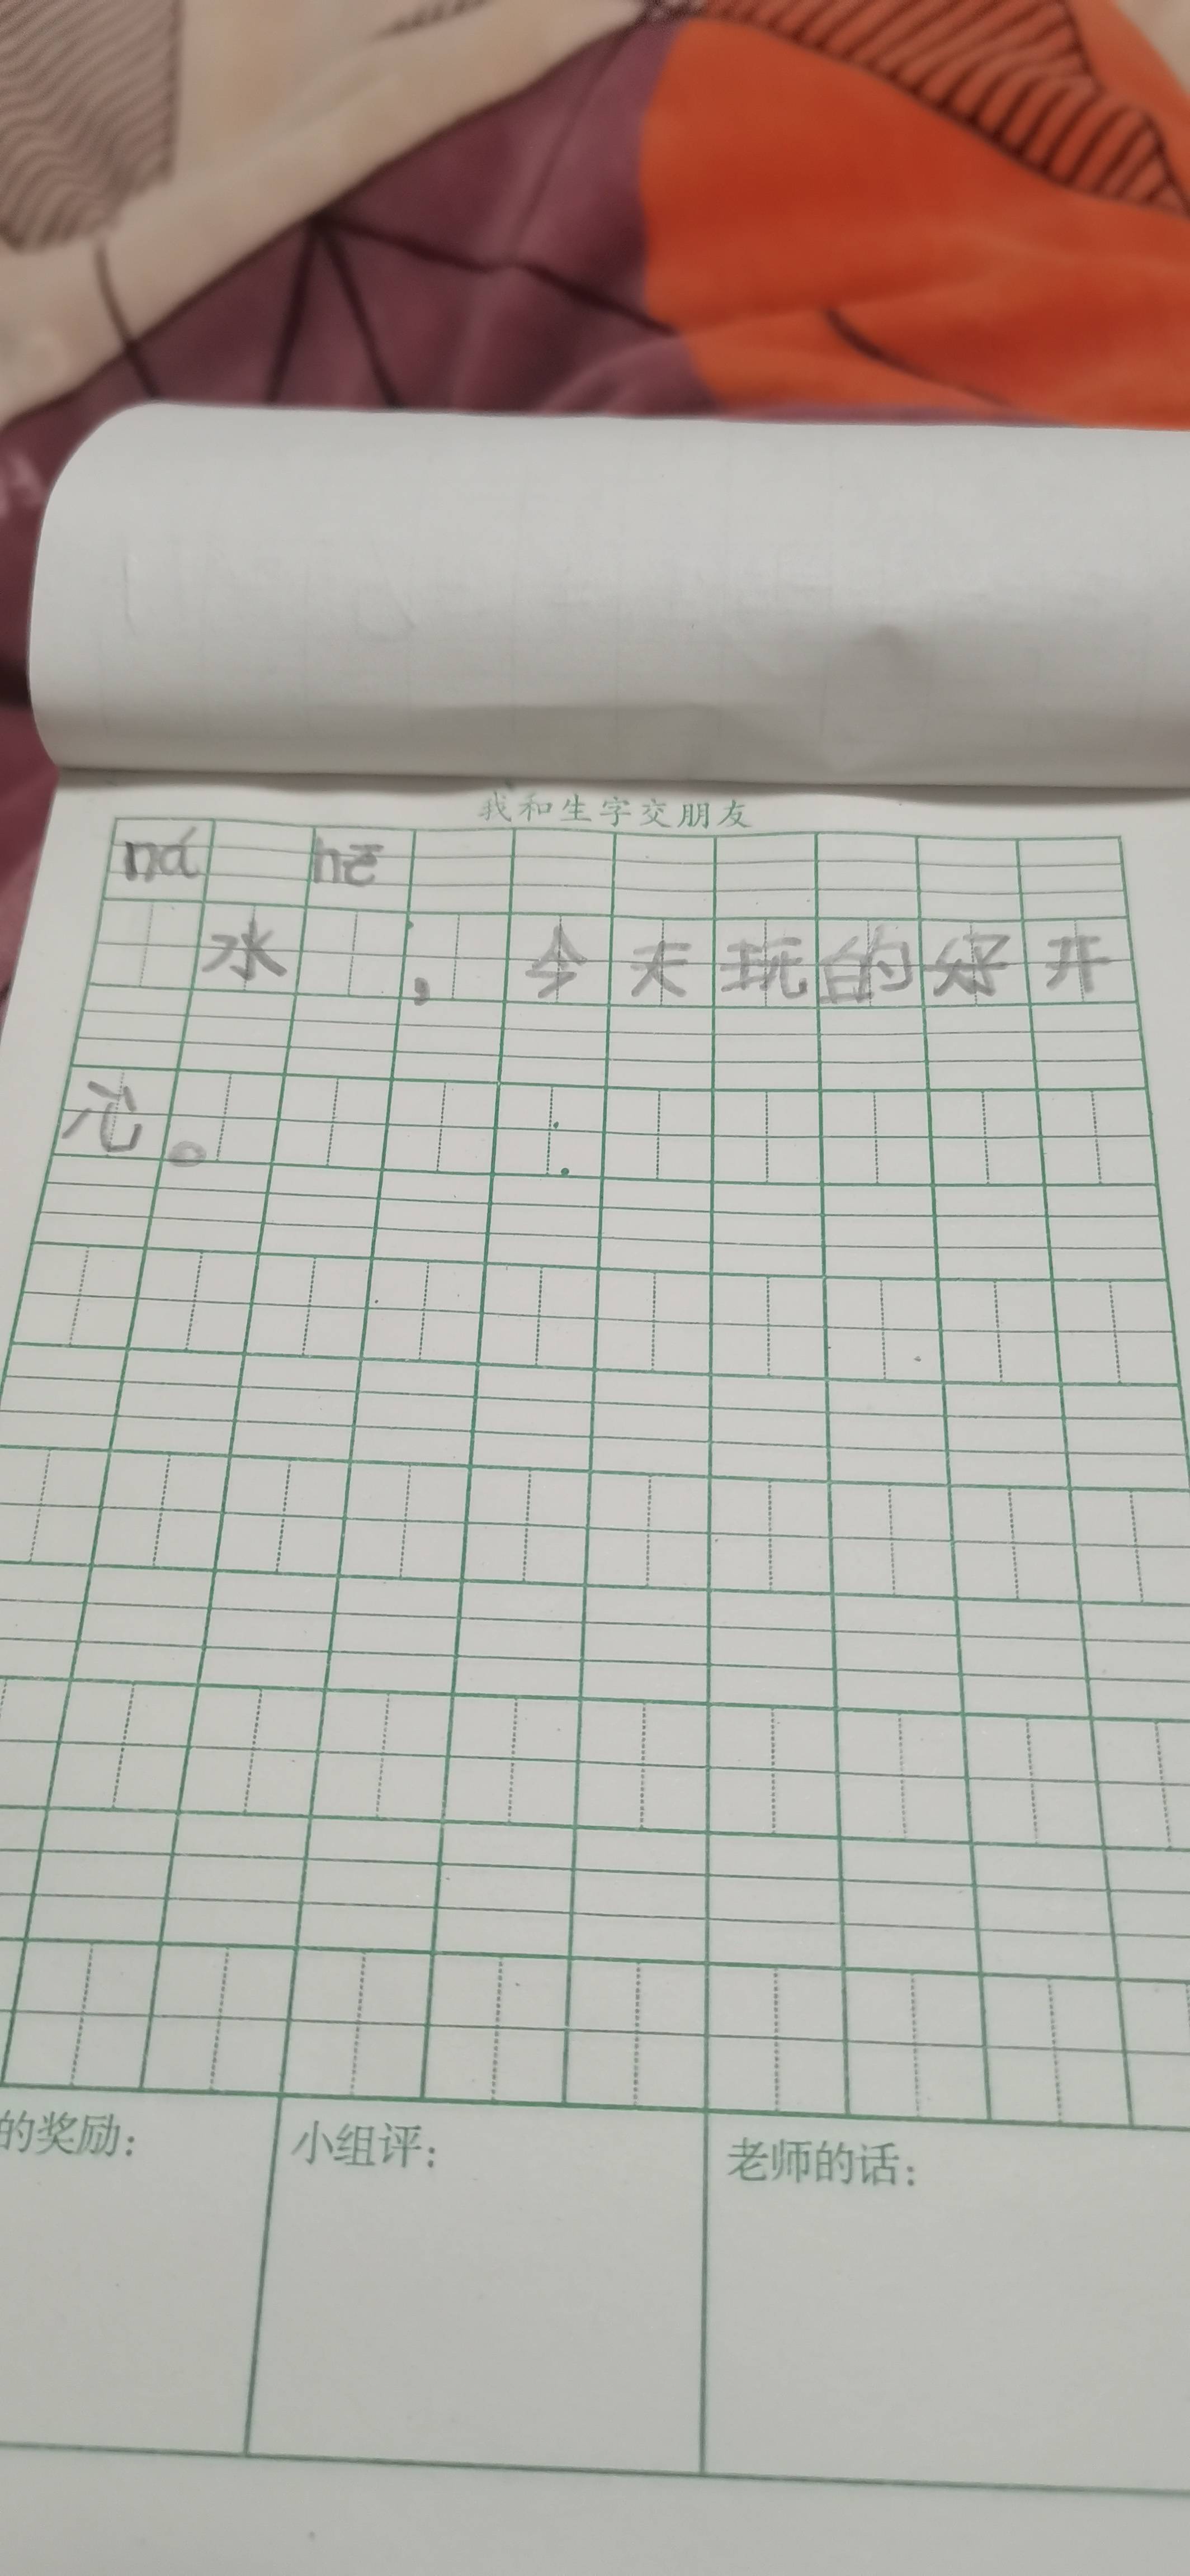 我和生字交朋友
ná hē
水，今天玩的好开
心。
的奖励： 小组评： 老师的话：